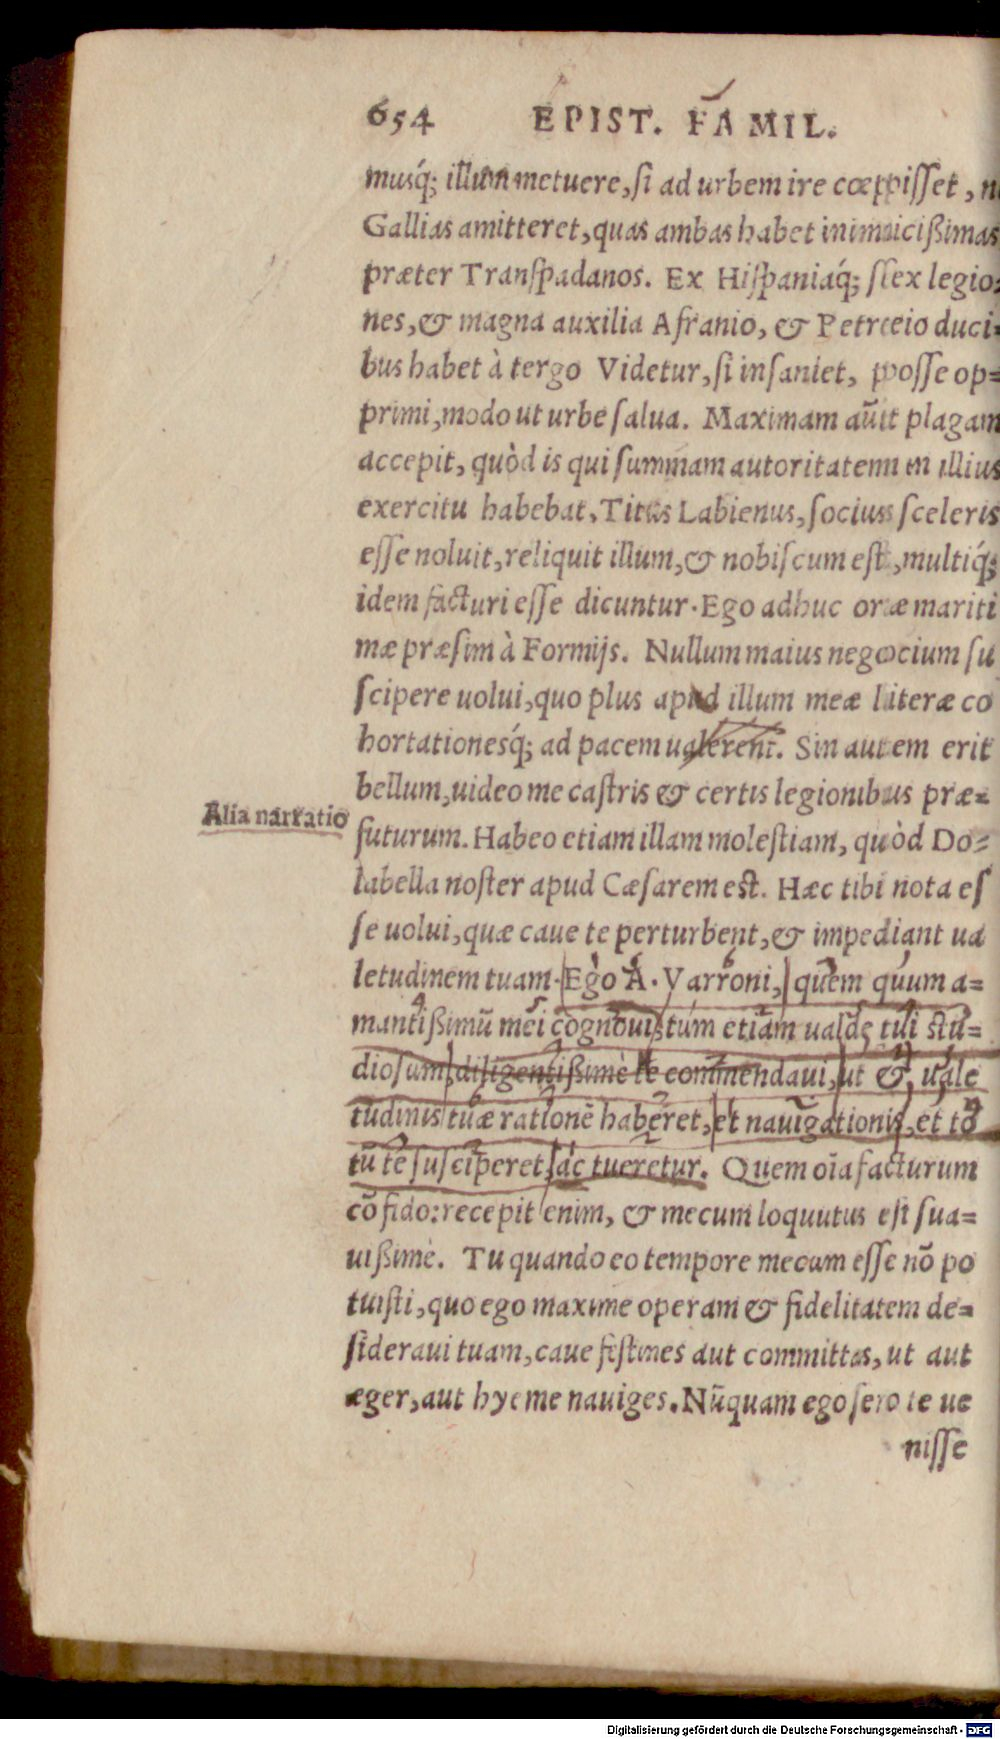 654 EPIST. FAMIL.
musq́; illum metuere, si ad urbem ire cœpisset, n
Gallias amitteret, quas ambas habet inimicißimas
præter Transpadanos. Ex Hispaniaq́; sex legio=
nes, & magna auxilia Afranio, & Petreio duci=
bus habet à tergo Videtur, si insaniet, posse op=
primi, modo ut urbe salua. Maximam aũt plagam
accepit, quòd is qui summam autoritatem in illius
exercitu habebat, Titus Labienus, socius sceleris
esse noluit, reliquit illum, & nobiscum est, multiq́;
idem facturi esse dicuntur. Ego adhuc oræ mariti
mæ præsim à Formijs. Nullum maius negocium su
scipere uolui, quo plus apud illum meæ literæ co
hortationesq́; ad pacem ualerent. Sin autem erit
bellum, uideo me castris & certis legionibus præ=
Alia narratio
futurum. Habeo etiam illam molestiam, quòd Do=
labella noster apud Cæsarem est. Hæc tibi nota es
se uolui, quæ caue te perturbent, & impediant ua
letudinem tuam. Ego A. Varroni, quem quum a=
mantißimũ mei cognoui, tum etiam ualde tui stu=
diosum, diligentißimè te commendaui, ut & uale
tudinis tuæ rationẽ haberet, et nauigationis, et to
tũ te susciperet, ac tueretur. Quem oĩa facturum
cõfido: recepit enim, & mecum loquutus est sua=
uißimè. Tu quando eo tempore mecum esse nõ po
tuisti, quo ego maxime operam & fidelitatem de=
sideraui tuam, caue festines aut committas, ut aut
æger, aut hyeme nauiges. Nũquam ego sero te ue
nisse
Digitalisierung gefördert durch die Deutsche Forschungsgemeinschaft - DFG